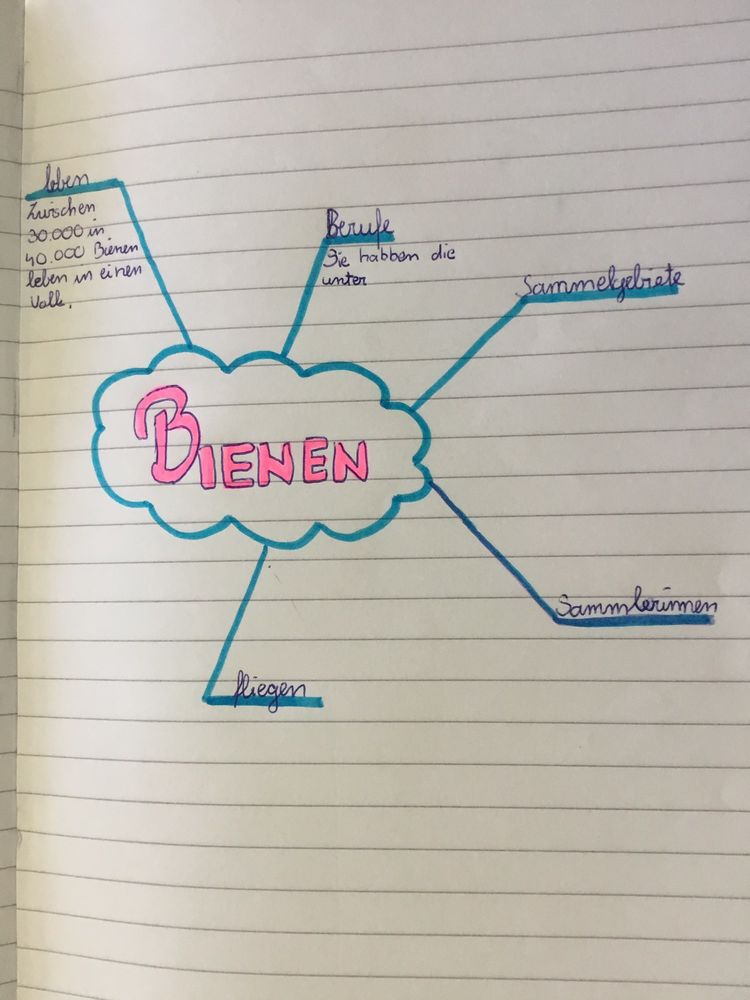 leben
Zwischen
30.000 in
40.000 Bienen
leben in einen
Volk.
Berufe
Sie habben die
unter
Sammelgebiete
BIENEN
Sammlerinnen
fliegen